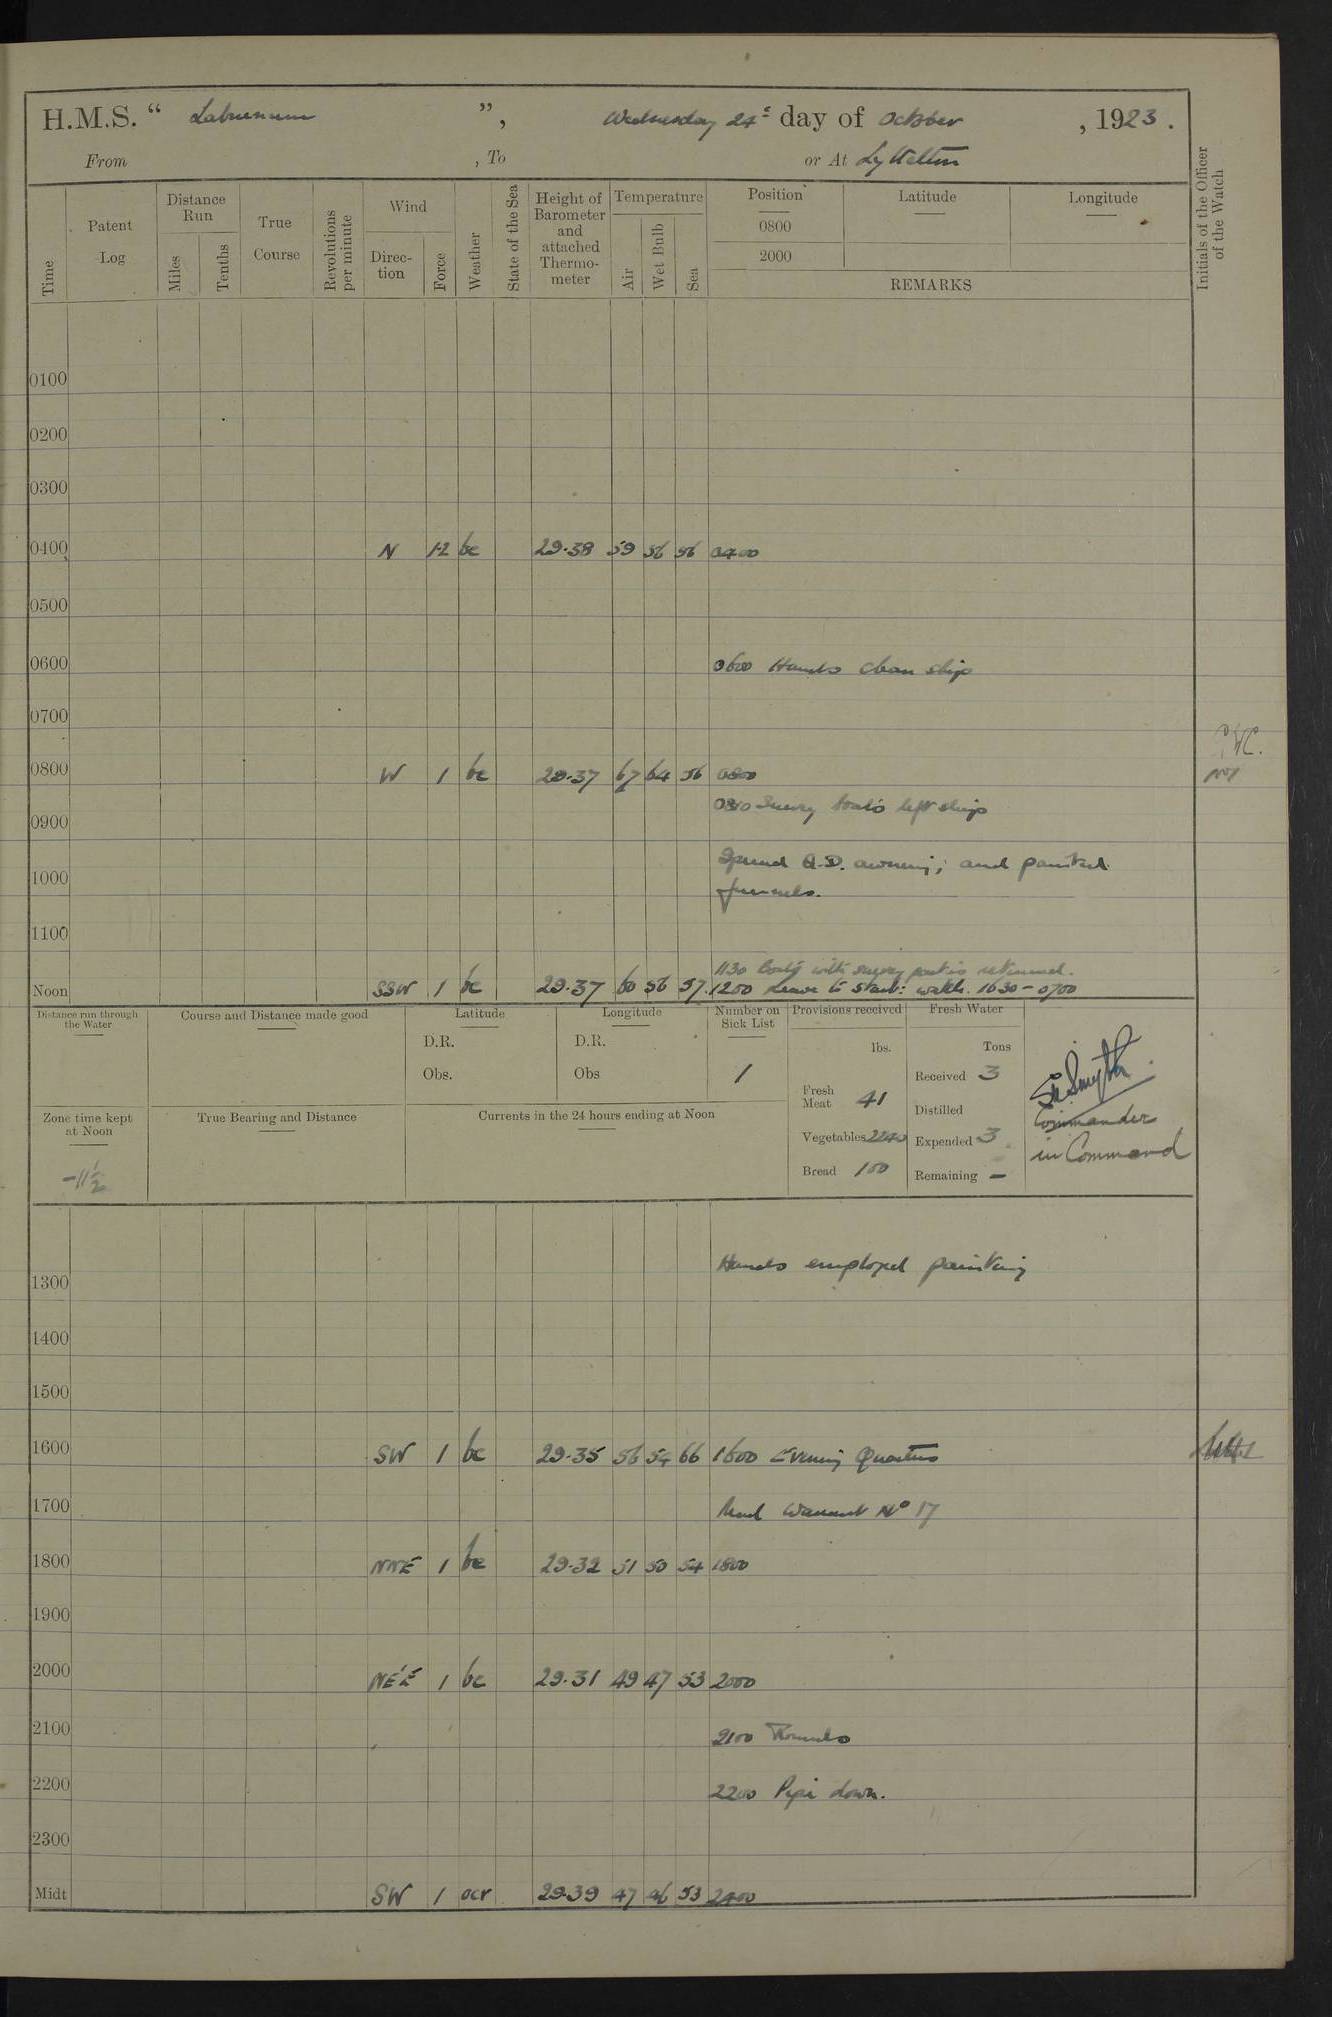 H.M.S. “ Laburnum ”, Wednesday 24th day of October, 1923.
From , To or At Lyttelton
Time Patent Log Distance Run Miles Tenths True Course Revolutions per minute Wind Direction Force Weather State of the Sea Height of Barometer and attached Thermometer Temperature Air Wet Bulb Sea Position 0800 2000 Latitude Longitude REMARKS Initials of the Officer of the Watch
0100
0200
0300
0400 N 1-2 bc 29.38 59 56 56 0400
0500
0600 0600 Hands clean ship
0700
0800 W 1 bc 29.37 67 64 56 0800
0810 Survey boats left ship
0900
Spread Q.D. awning; and painted
1000 funnels.
1100
1130 Boats with survey parties returned.
Noon SSW 1 bc 29.37 60 56 57 1200 Leave to Starb: watch. 1630-0700
Distance run through the Water Course and Distance made good Latitude Longitude Number on Sick List Provisions received Fresh Water
D.R. D.R. lbs. Tons
Obs. Obs 1 Received 3
Fresh Meat 41 Distilled
Zone time kept at Noon True Bearing and Distance Currents in the 24 hours ending at Noon
Vegetables 2240 Expended 3
-11½ Bread 100 Remaining -
Commander
in Command
Hands employed painting
1300
1400
1500
1600 SW 1 bc 29.35 56 54 66 1600 Evening Quarters
1700 Read Warrant No 17
1800 NNE 1 bc 29.32 51 50 54 1800
1900
2000 NE'E 1 bc 29.31 49 47 53 2000
2100 2100 Rounds
2200 2200 Pipe down.
2300
Midt SW 1 ocr 29.39 47 46 53 2400